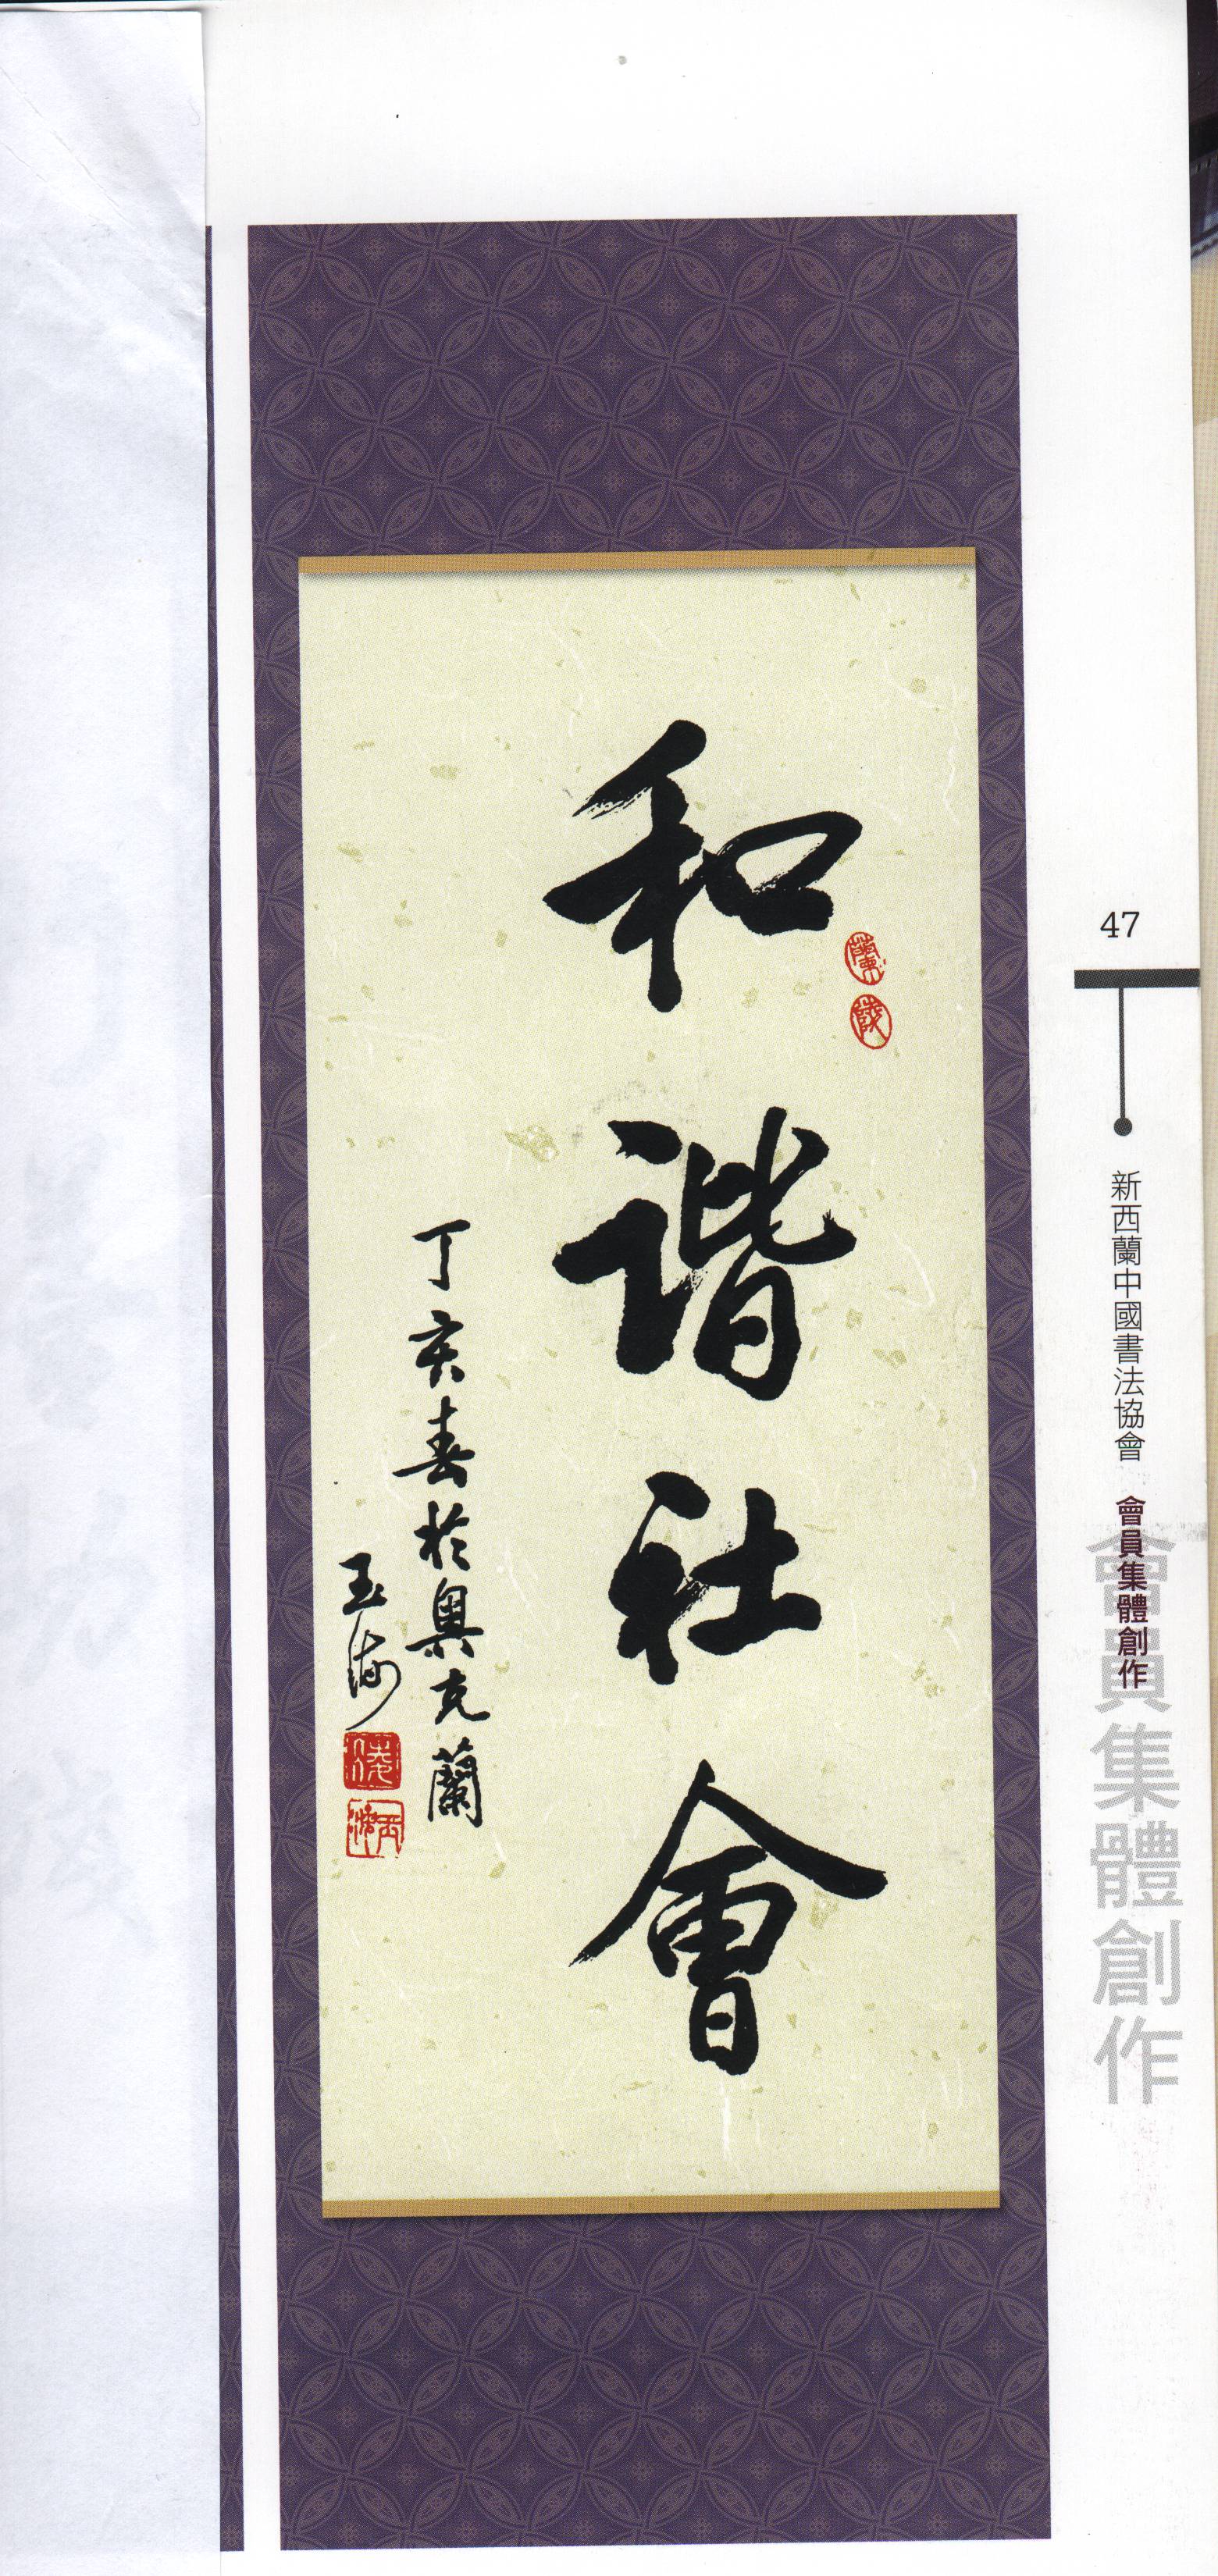 和諧社會
丁亥春於奧克蘭
玉海
蘭
陵
47
新西蘭中國書法協會 會員集體創作
會員集體創作